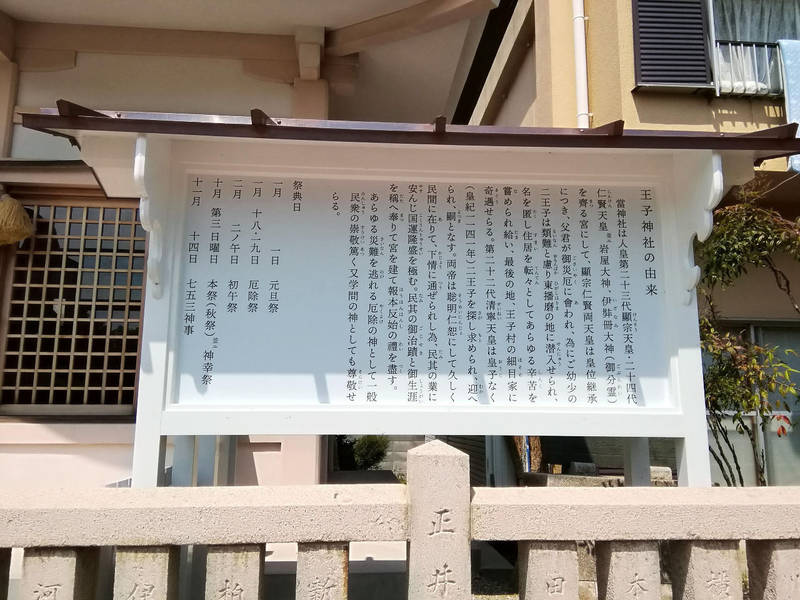 王子神社の由来
當神社は人皇第二十三代顕宗天皇・二十四代
仁賢天皇 並ニ 岩屋大神、伊弉冊大神(御分霊)
を齊る宮にして、顕宗仁賢両天皇は皇位継承
につき、父君が御災厄に會われ、為にご幼少の
二王子は類難と慮り東播磨の地に潜入せられ、
名を匿し住居を転々としてあらゆる辛苦を
嘗められ給い、最後の地、王子村の細目家に
奇遇せらる。第二十二代清寧天皇は皇子なく
(皇紀一一四一年)二王子を探し求められ、迎へ
られ、嗣となす。両帝は聡明仁恕にして久しく
民間に在りて、下情に通ぜられし為、民其の業に
安んじ国運隆盛を極む。民其の御治蹟と御生涯
を稱へ奉りて宮を建て報本反始の禮を盡す。
あらゆる災難を逃れる厄除の神として一般
民衆の崇敬篤く又学問の神としても尊敬せ
らる。
祭典日
一月 一日 元旦祭
一月 十八・十九日 厄除祭
二月 二ノ午日 初午祭
十月 第三日曜日 本祭(秋祭)並ニ 神幸祭
十一月 十四日 七五三神事
正井